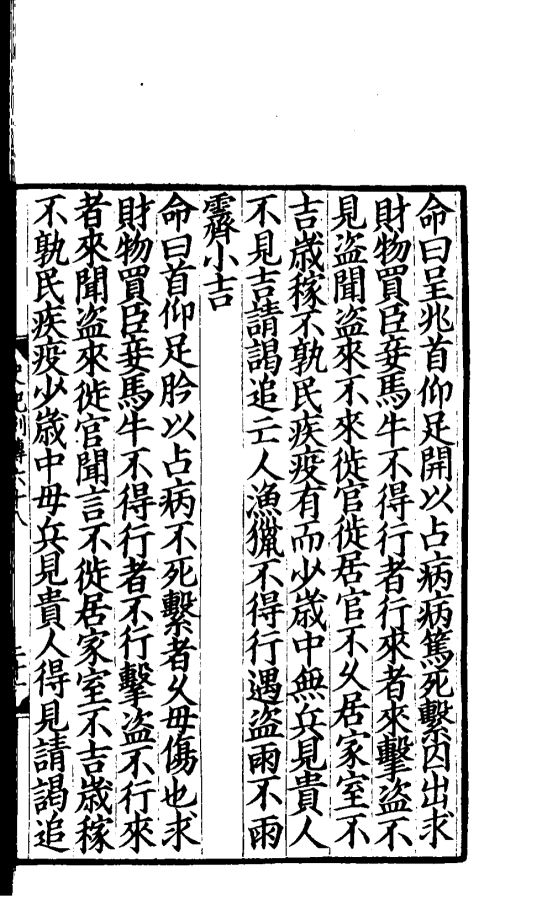 命曰呈兆首仰足開以占病病篤死繫囚出求
財物買臣妾馬牛不得行者行來者來擊盜不
見盜聞盜來不來徙官徙居官不久居家室不
吉歲稼不孰民疾疫有而少歲中無兵見貴人
不見吉請謁追亡人漁獵不得行遇盜雨不雨
霽小吉
命曰首仰足肣以占病不死繫者久毋傷也求
財物買臣妾馬牛不得行者不行擊盜不行來
者來聞盜來徙官聞言不徙居家室不吉歲稼
不孰民疾疫少歲中毋兵見貴人得見請謁追
史記列傳六十八